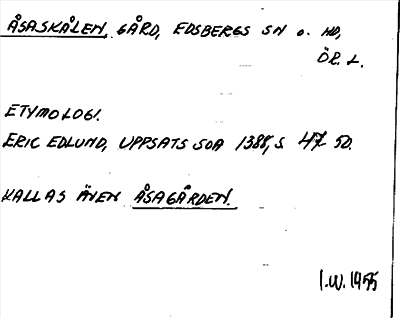 ÅSASKÅLEN, GÅRD, EDSBERGS SN O. HD,
ÖR. L.
ETYMOLOGI.
ERIC EDLUND, UPPSATS SOA 1388, S 47 50.
KALLAS ÄVEN ÅSAGÅRDEN.
I.W. 1955